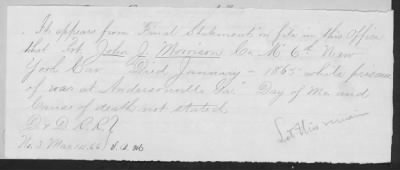 It appears from Final Statement on file in this Office
that Cot. John J. Morrison Co. M. 6th New
York Cav "Died January - 1865 while prisoner
of war at Andersonville Ga." Day of Mo. and
Cause of death not stated
D & D. R.R.
No. 3 Mar 12.66
Let this remain